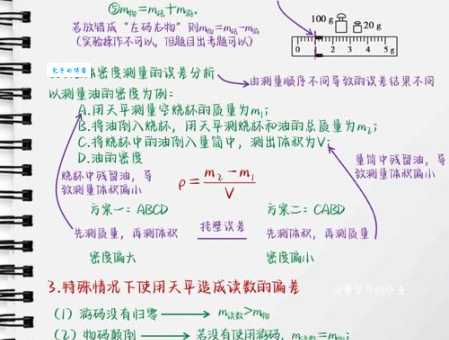 ⑤m物=m砝+m游。
若放错成“左码右物”则m物=m砝-m游
(实验操作不可以，但题目出考题可以)
100g 20g
0 1 2 3 4 5g
密度测量的误差分析
由测量顺序不同导致的误差结果不同
以测量油的密度为例：
A.用天平测量空烧杯的质量为m₁；
B.将油倒入烧杯，用天平测烧杯和油的总质量为m₂；
C.将烧杯中的油倒入量筒中，测出体积为V；
D.油的密度
烧杯中残留油，导
致测量体积偏小
ρ=(m₂-m₁)/V
量筒中残留油，导
致测量体积偏小
方案一：ABCD
方案二：CABD
先测质量，再测体积
挂壁误差
先测体积，再测质量
密度偏大
密度偏小
3.特殊情况下使用天平造成读数的偏差
(1) 游码没有归零
m读数>m物
(2) 物码颠倒
若没有使用游码，m读数=m物；